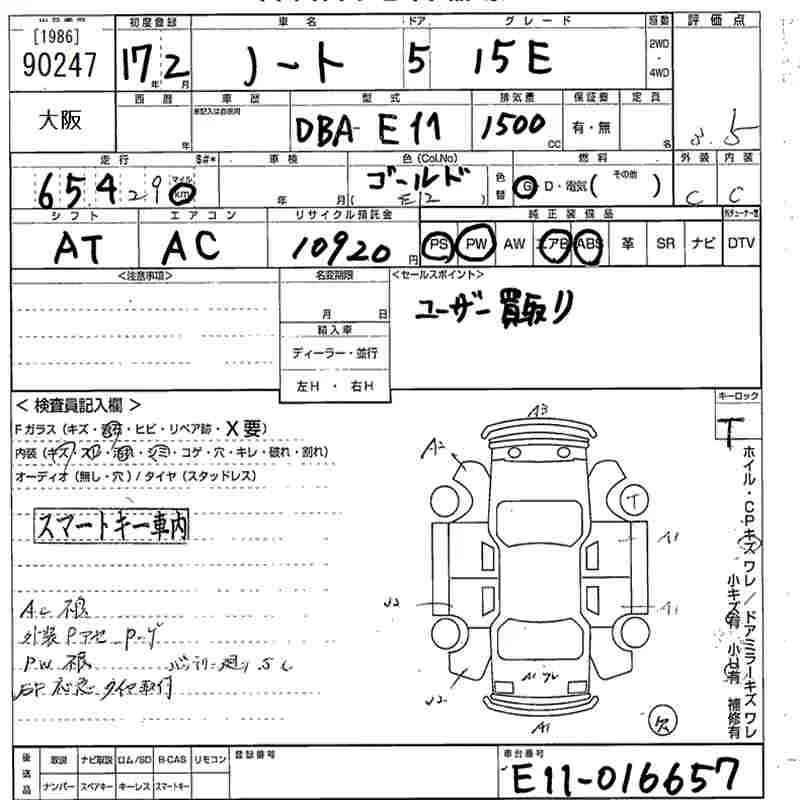 [1986]
90247
初度登録 車名 ドア グレード 駆動 評価点
17年 2月 ノート 5 15E 2WD・4WD
大阪
西暦 車歴 型式 排気量 保証書 定員
年 DBA- E11 1500CC 有・無 名
5
走行 $#* 車検 色(Col.No) 燃料 外装 内装
654 マイル km 年 月 ゴールド 色替 G・D・電気( その他 ) C C
シフト エアコン リサイクル預託金 純正装備品
AT AC 10920円 PS PW AW エアB ABS 革 SR ナビ DTV
<注意事項> 名変期限 <セールスポイント>
月 日 ユーザー買取り
輸入車
ディーラー・並行
左H ・ 右H
キーロック
T
< 検査員記入欄 >
Fガラス(キズ・ ・ヒビ・リペア跡・X要)
内装(キズ・ ・ ・シミ・コゲ・穴・キレ・破れ・割れ)
オーディオ(無し・穴)/タイヤ(スタッドレス)
スマートキー車内
A3
A2
T
A1
A1
A1
欠
ホイル・CPキズ ワレ/ドアミラーキズ ワレ
小キズ有 小凹有 補修有
後送品 取説 ナビ取説 ロム/SD B-CAS リモコン 登録番号 車台番号
ナンバー スペアキー キーレス スマートキー E11-016657